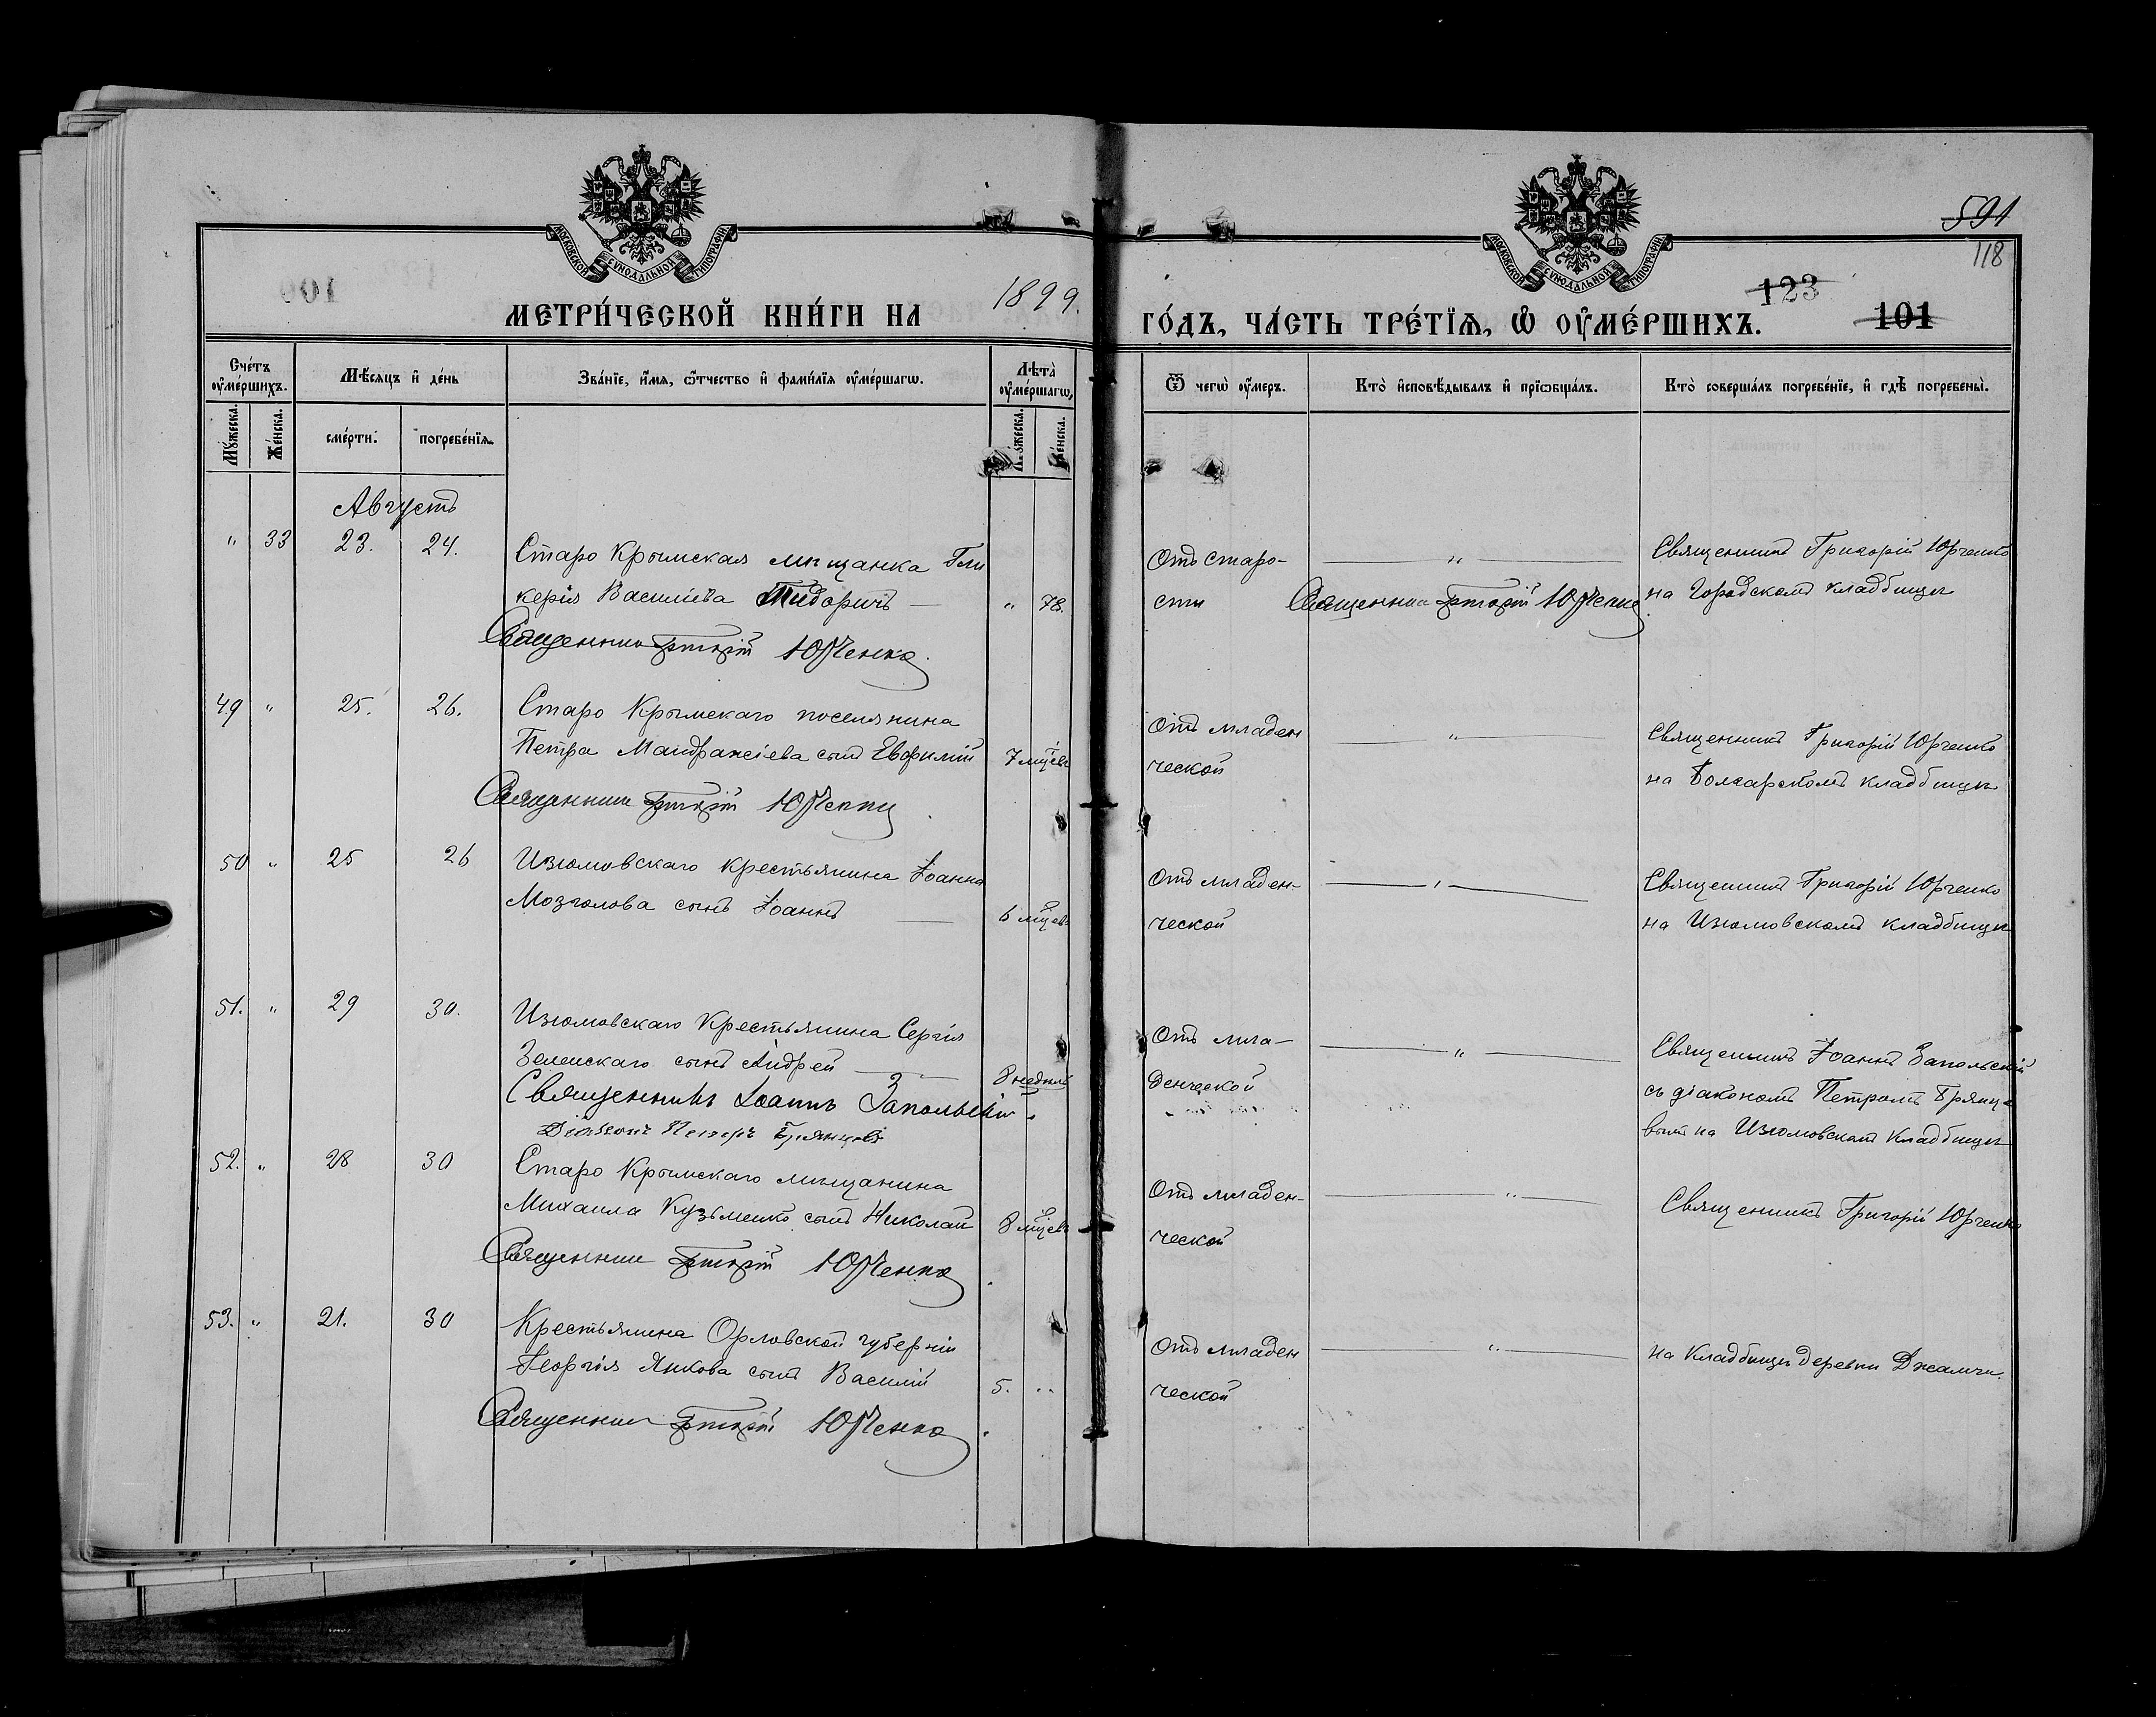 МОСКОВСКОЙ СУНОДАЛЬНОЙ ТИПОГРАФІИ
МЕТРИ́ЧЕСКОЙ КНИ́ГИ НА 1899.
МОСКОВСКОЙ СУНОДАЛЬНОЙ ТИПОГРАФІИ
591
118
123
101
ГО́ДЪ, ЧА́СТЬ ТРЕ́ТІѦ, Ѡ ОУМЕ́РШИХЪ.
Сче́тъ оумершихъ.
Мѣсяцъ и де́нь
Зва́ніе, и́мя, ѿчество и фами́лія оуме́ршагѡ.
Лѣта̀ оуме́ршагѡ,
Му́жеска.
Же́нска.
сме́рти.
погребе́нія.
Му́жеска.
Же́нска.
Ѿ чегѡ̀ оу́меръ.
Кто̀ исповѣ́дывалъ и пріѡбща́лъ.
Кто̀ соверша́лъ погребе́ніе, и гдѣ̀ погребены̀.
Августъ
" 33 23. 24. Старо Крымская мѣщанка Гли
керія Василіева Тидоричъ — " 78.
Священникъ Григорій Юрченко
Отъ старо-
сти
— " —
Священникъ Григорій Юрченко
Священникъ Григорій Юрченко
на Городскомъ кладбищѣ
49 " 25. 26. Старо Крымскаго поселянина
Петра сынъ Евфимій 7 мцевъ
Священникъ Григорій Юрченко
Отъ младен
ческой
— " —
Священникъ Григорій Юрченко
на Болгарскомъ кладбищѣ
50 " 25 26 Изюмовскаго крестьянина Іоанна
Мозголова сынъ Іоаннъ — 6 мцевъ
Отъ младен-
ческой
— " —
Священникъ Григорій Юрченко
на Изюмовскомъ кладбищѣ
51. " 29 30. Изюмовскаго Крестьянина Сергія
Зеленскаго сынъ Андрей — 8 недѣль
Священникъ Іоаннъ Запольскій.
Діаконъ Петръ Брянцевъ
Отъ мла-
денческой
— " —
Священникъ Іоаннъ Запольскій
съ діакономъ Петромъ Брянце
вымъ на Изюмовскомъ кладбищѣ
52. " 28 30 Старо Крымскаго мѣщанина
Михаила Кузьменко сынъ Николай 8 мцевъ
Священникъ Григорій Юрченко.
Отъ младен-
ческой
— " —
Священникъ Григорій Юрченко
53. " 21. 30 Крестьянина Орловской губерніи
Георгія Янкова сынъ Василій 5. "
Священникъ Григорій Юрченко.
Отъ младен
ческой
— " —
на кладбищѣ деревни Джамчи.